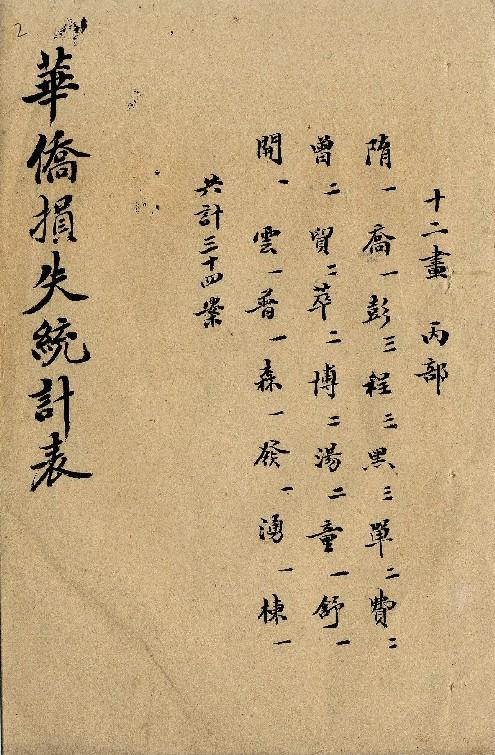 十二畫 丙部
隋一喬一彭三程三黑三單二費二
曾二貿二萃二博二湯二童一舒一
開一雲一普一森一發一湧一棟一
共計三十四案
華僑損失統計表
2